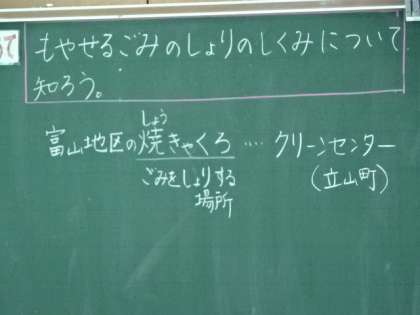 めて
もやせるごみのしょりのしくみについて
知ろう。
しょう
富山地区の焼きゃくろ…クリーンセンター
ごみをしょりする
場所
(立山町)